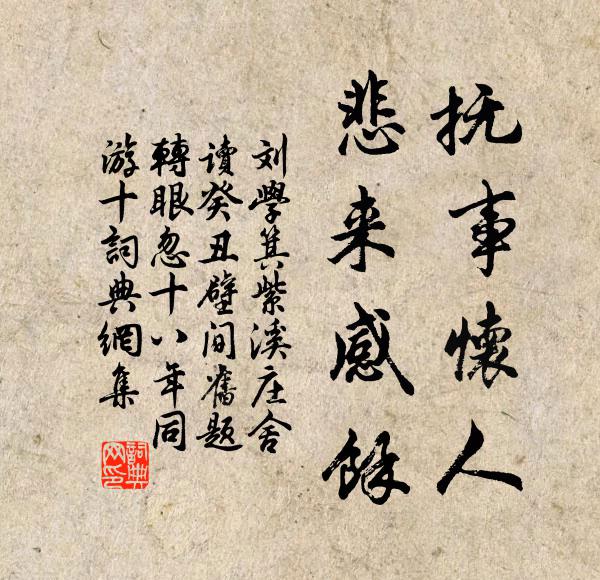 抚事懷人
悲来感餘
刘學箕紫溪庄舍
读癸丑壁间舊题
轉眼忽十八年同
游十詞典網集
詞典
网印